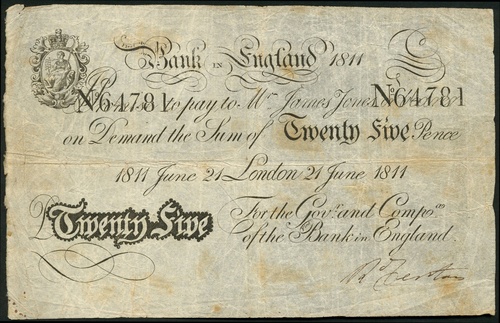 Bank in England 1811
No 64781 to pay to Mr James Jones No 64781
on Demand the Sum of Twenty Five Pence
1811 June 21 London 21 June 1811
£ Twenty Five
For the Govr. and Compa.
of the Bank in England.